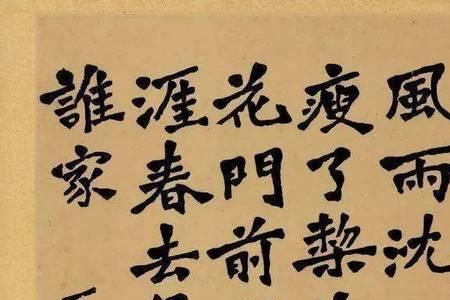 風雨沈
瘦了棃
花門前
涯春去
誰家